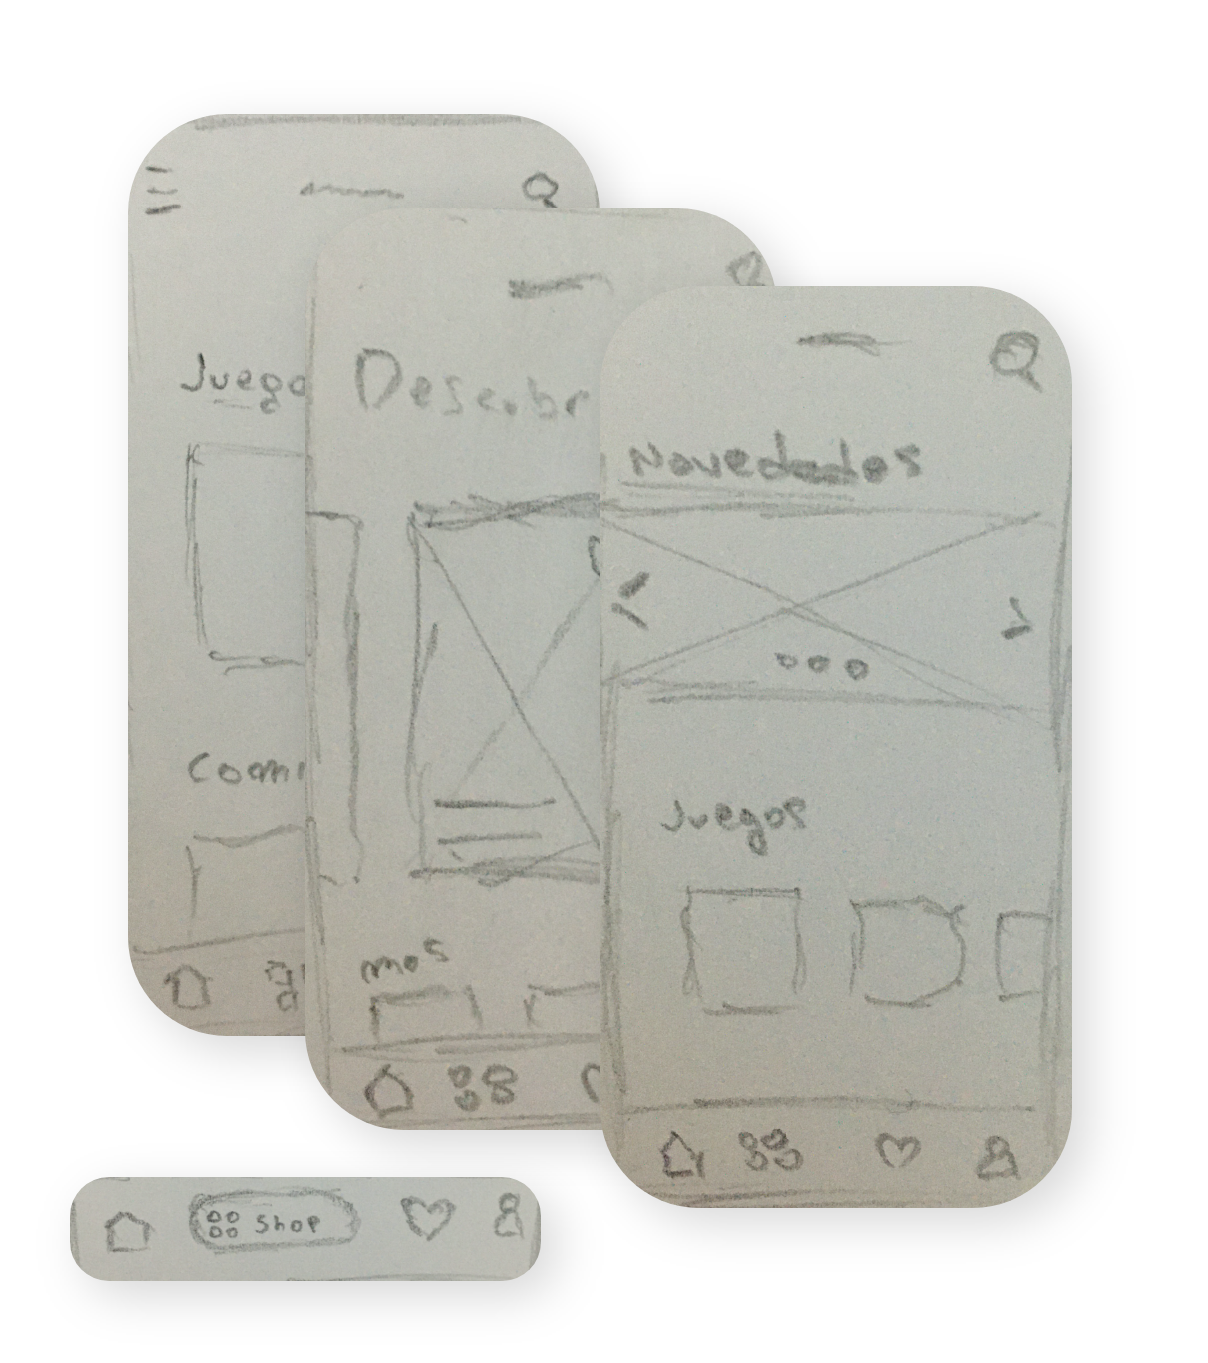 Juego
Comi
Descubr
mos
Novedades
Juegos
Shop